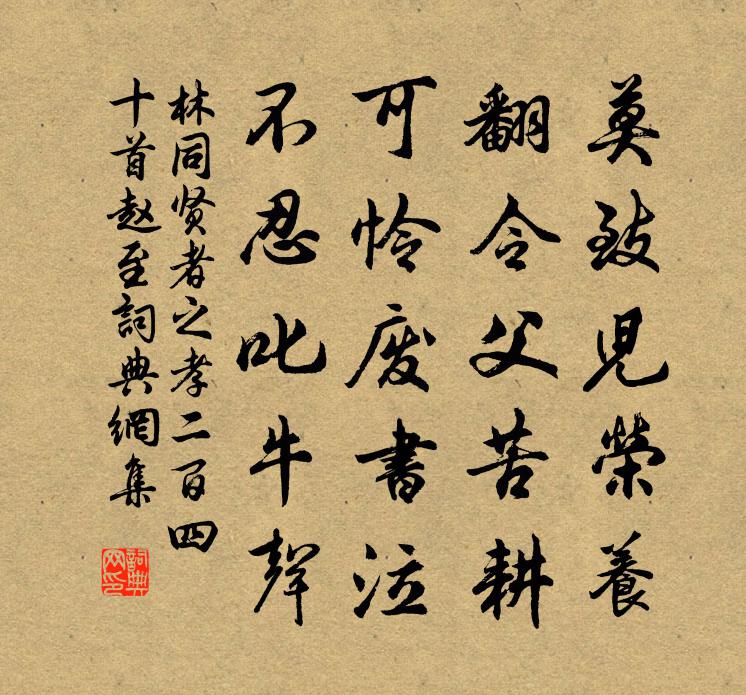 莫致児榮養
翻令父苦耕
可怜废書泣
不忍叱牛聲
林同贤者之孝二百四
十首趙至詞典網集
詞典
网印